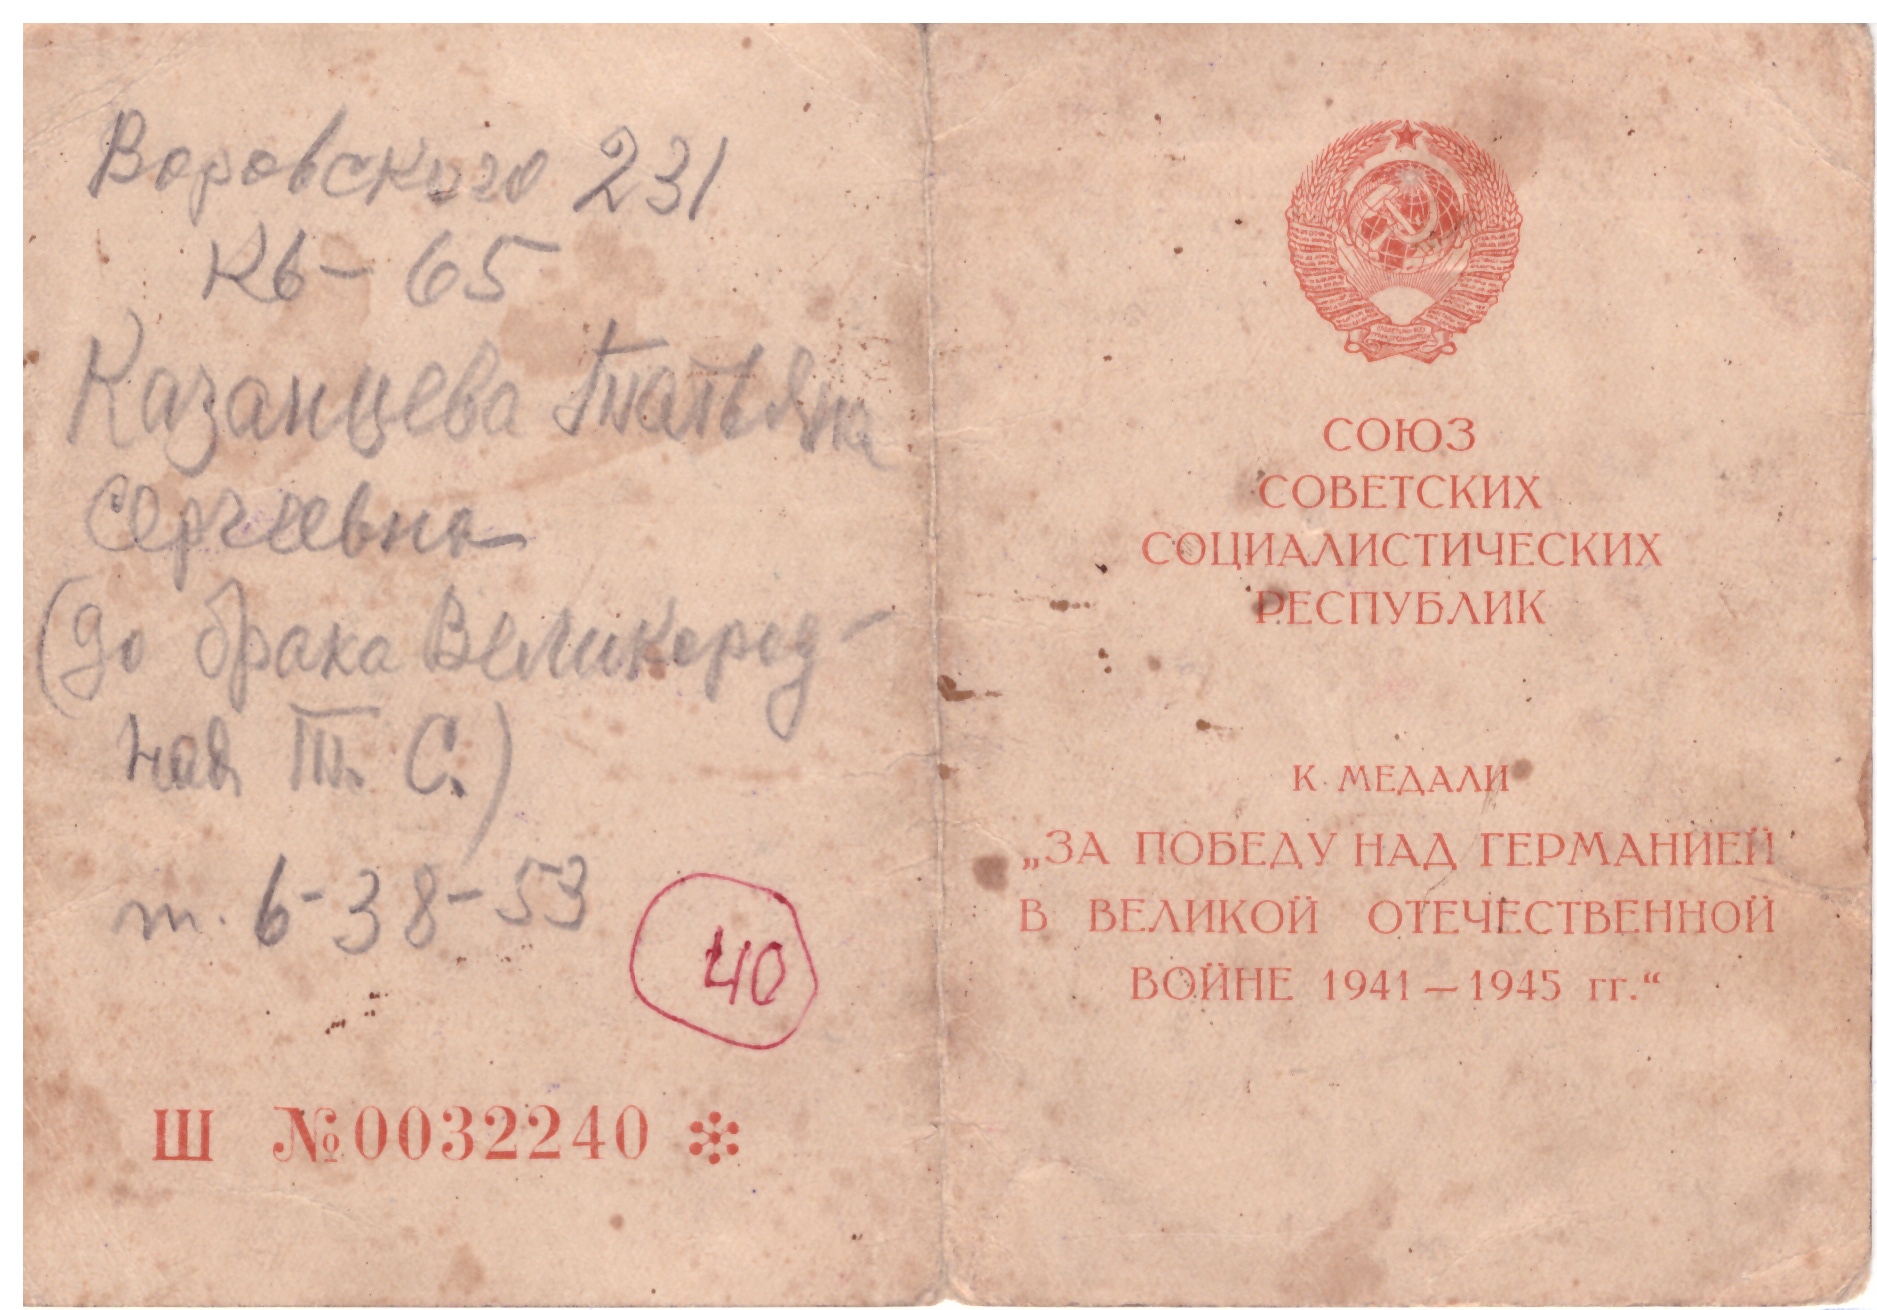 Воровского 231
кв - 65
Казанцева Татьяна
Сергеевна
(до брака Великород-
ная Т. С.)
т. 6-38-53
40
Ш №0032240
СОЮЗ
СОВЕТСКИХ
СОЦИАЛИСТИЧЕСКИХ
РЕСПУБЛИК
К МЕДАЛИ
„ЗА ПОБЕДУ НАД ГЕРМАНИЕЙ
В ВЕЛИКОЙ ОТЕЧЕСТВЕННОЙ
ВОЙНЕ 1941 — 1945 гг.“